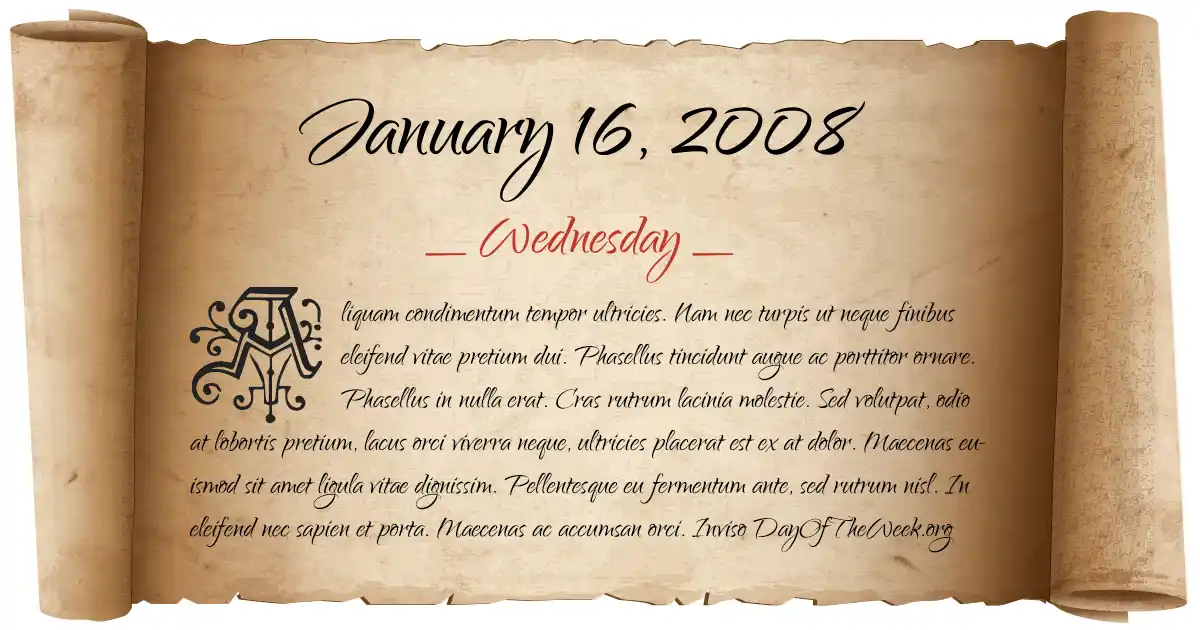 January 16, 2008
__ Wednesday __
Aliquam condimentum tempor ultricies. Nam nec turpis ut neque finibus
eleifend vitae pretium dui. Phasellus tincidunt augue ac porttitor ornare.
Phasellus in nulla erat. Cras rutrum lacinia molestie. Sed volutpat, odio
at lobortis pretium, lacus orci viverra neque, ultricies placerat est ex at dolor. Maecenas eu-
ismod sit amet ligula vitae dignissim. Pellentesque eu fermentum ante, sed rutrum nisl. In
eleifend nec sapien et porta. Maecenas ac accumsan orci. Inviso DayOfTheWeek.org